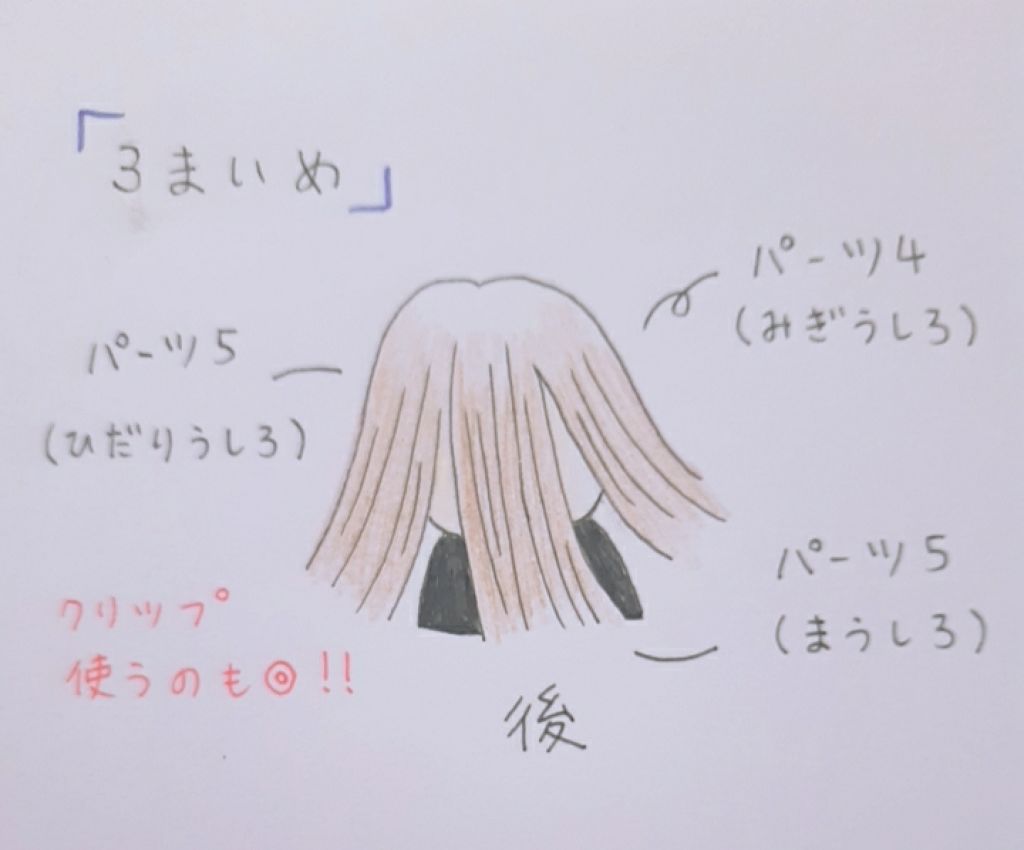 「3まいめ」
パーツ4
(みぎうしろ)
パーツ5
(ひだりうしろ)
パーツ5
(まうしろ)
クリップ
使うのも◎!!
後